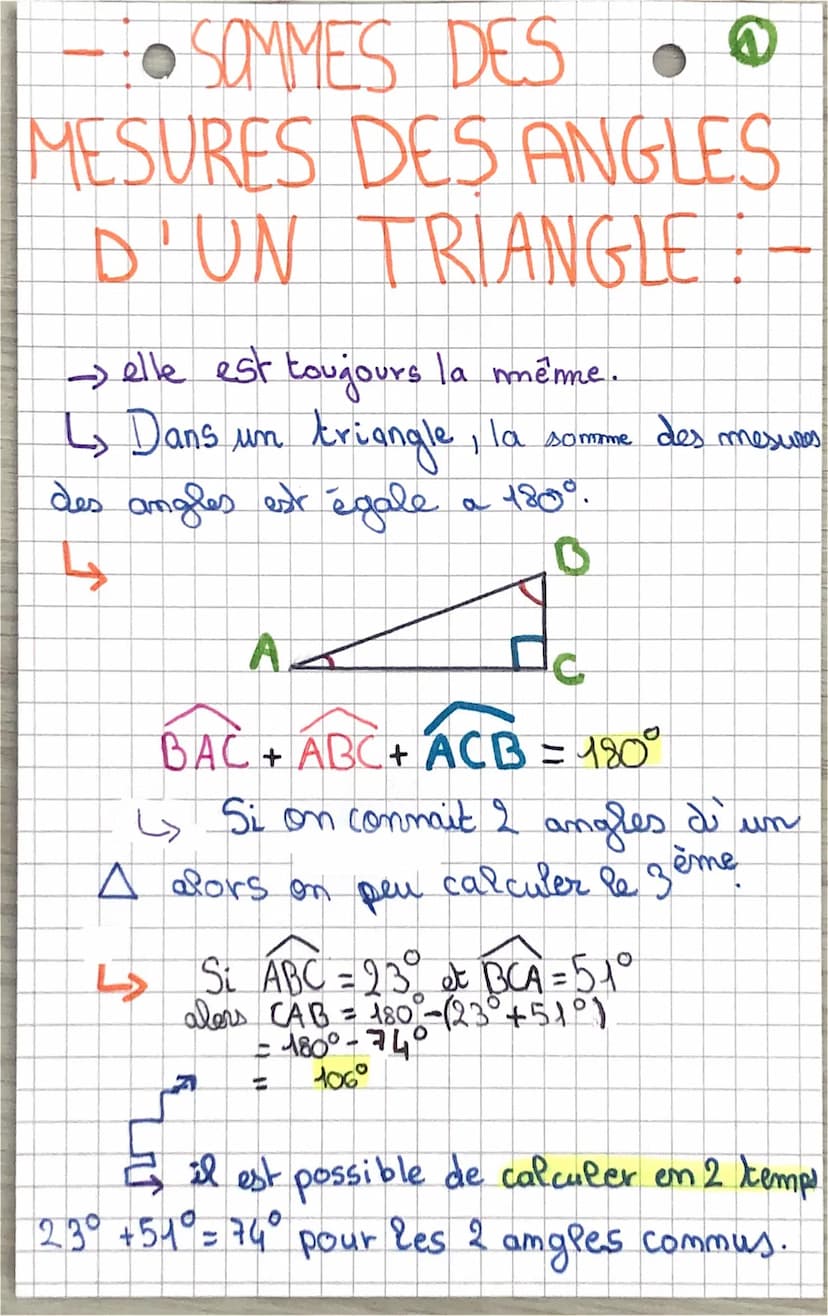 -: SOMMES DES ①
MESURES DES ANGLES
D'UN TRIANGLE :-
→ elle est toujours la même.
↳ Dans un triangle, la somme des mesures
des angles est égale a 180°.
↳
B
A
C
BAC + ABC + ACB = 180°
↳ Si on connait 2 angles d'un
△ alors on peu calculer le 3ème.
↳ Si ABC = 23° et BCA = 51°
alors CAB = 180° - (23° + 51°)
= 180° - 74°
= 106°
↳ il est possible de calculer en 2 temps
23° + 51° = 74° pour les 2 angles commus.